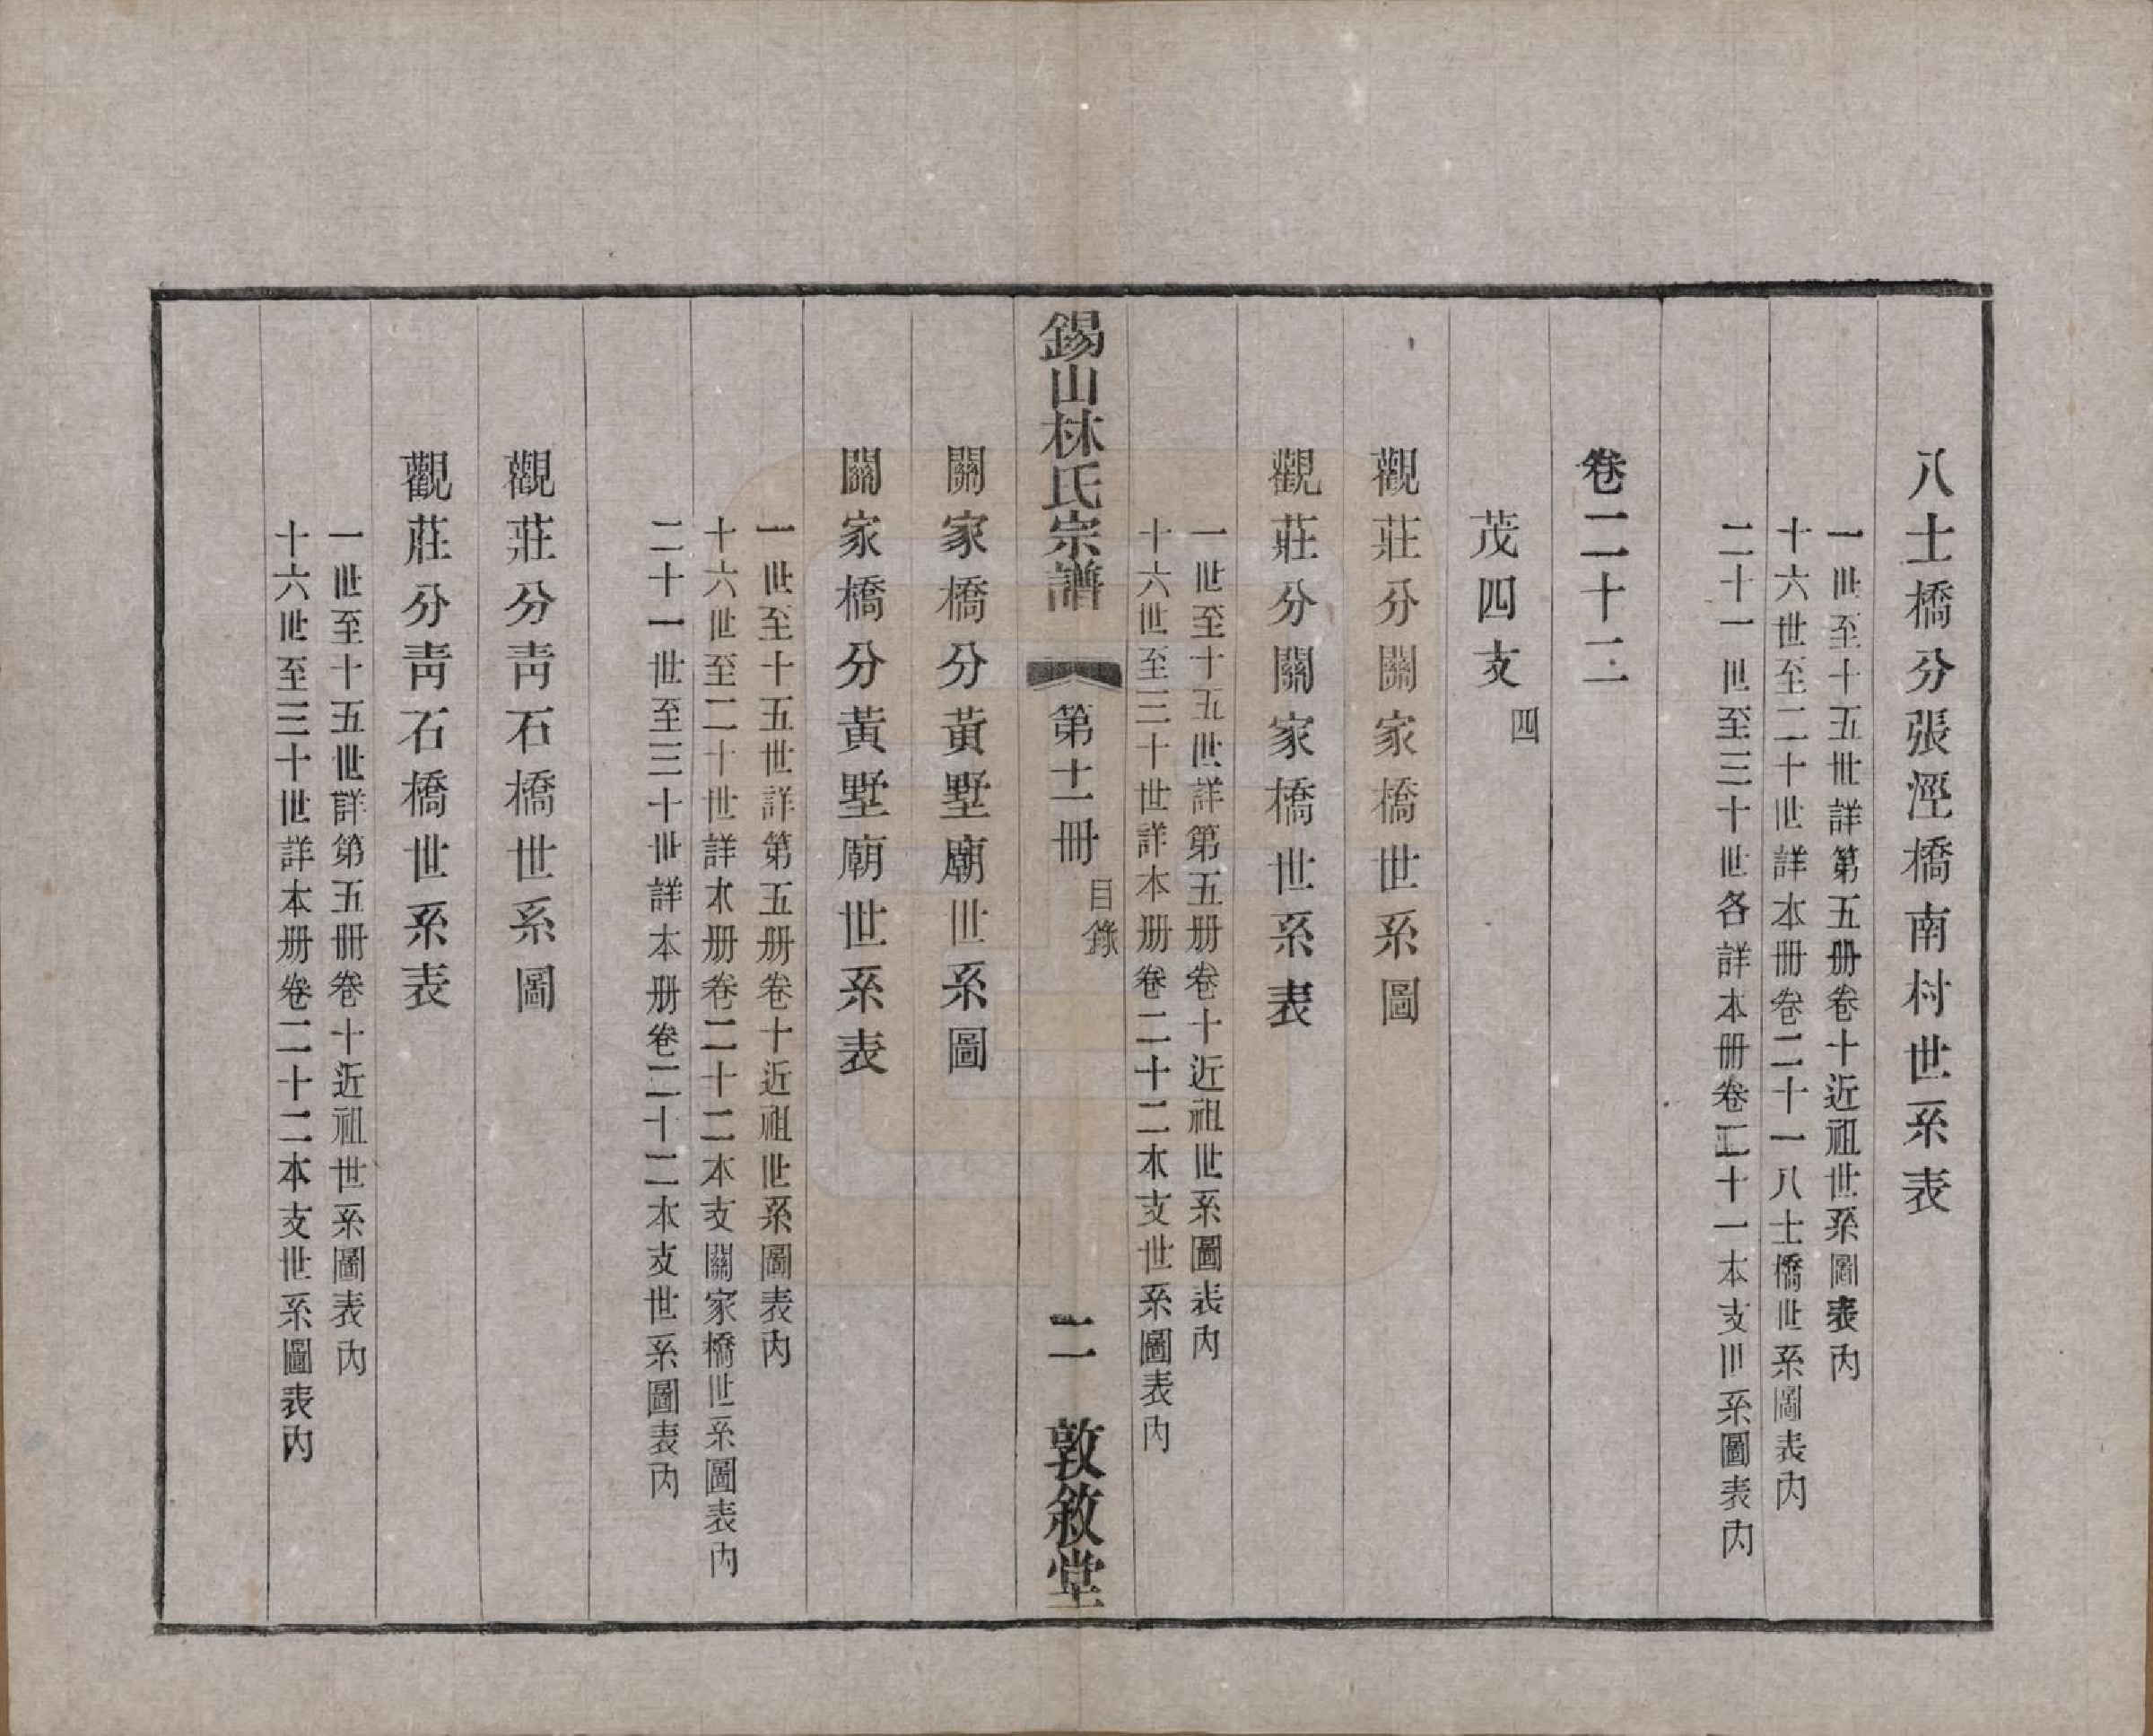 八士橋分張涇橋南村世系表
一世至十五世詳第五册卷十近祖世系圖表內
十六世至二十世詳本册卷二十一八士橋世系圖表內
二十一世至三十世各詳本册卷二十一本支世系圖表內
卷二十二
茂四支 四
觀莊分關家橋世系圖
觀莊分關家橋世系表
一世至十五世詳第五册卷十近祖世系圖表內
十六世至三十世詳本册卷二十二本支世系圖表內
錫山林氏宗譜 第十一冊 目錄 二 敦敘堂
關家橋分黃墅廟世系圖
關家橋分黃墅廟世系表
一世至十五世詳第五册卷十近祖世系圖表內
十六世至二十世詳本册卷二十二本支關家橋世系圖表內
二十一世至三十世詳本册卷二十二本支世系圖表內
觀莊分靑石橋世系圖
觀莊分靑石橋世系表
一世至十五世詳第五冊卷十近祖世系圖表內
十六世至三十世詳本册卷二十二本支世系圖表內